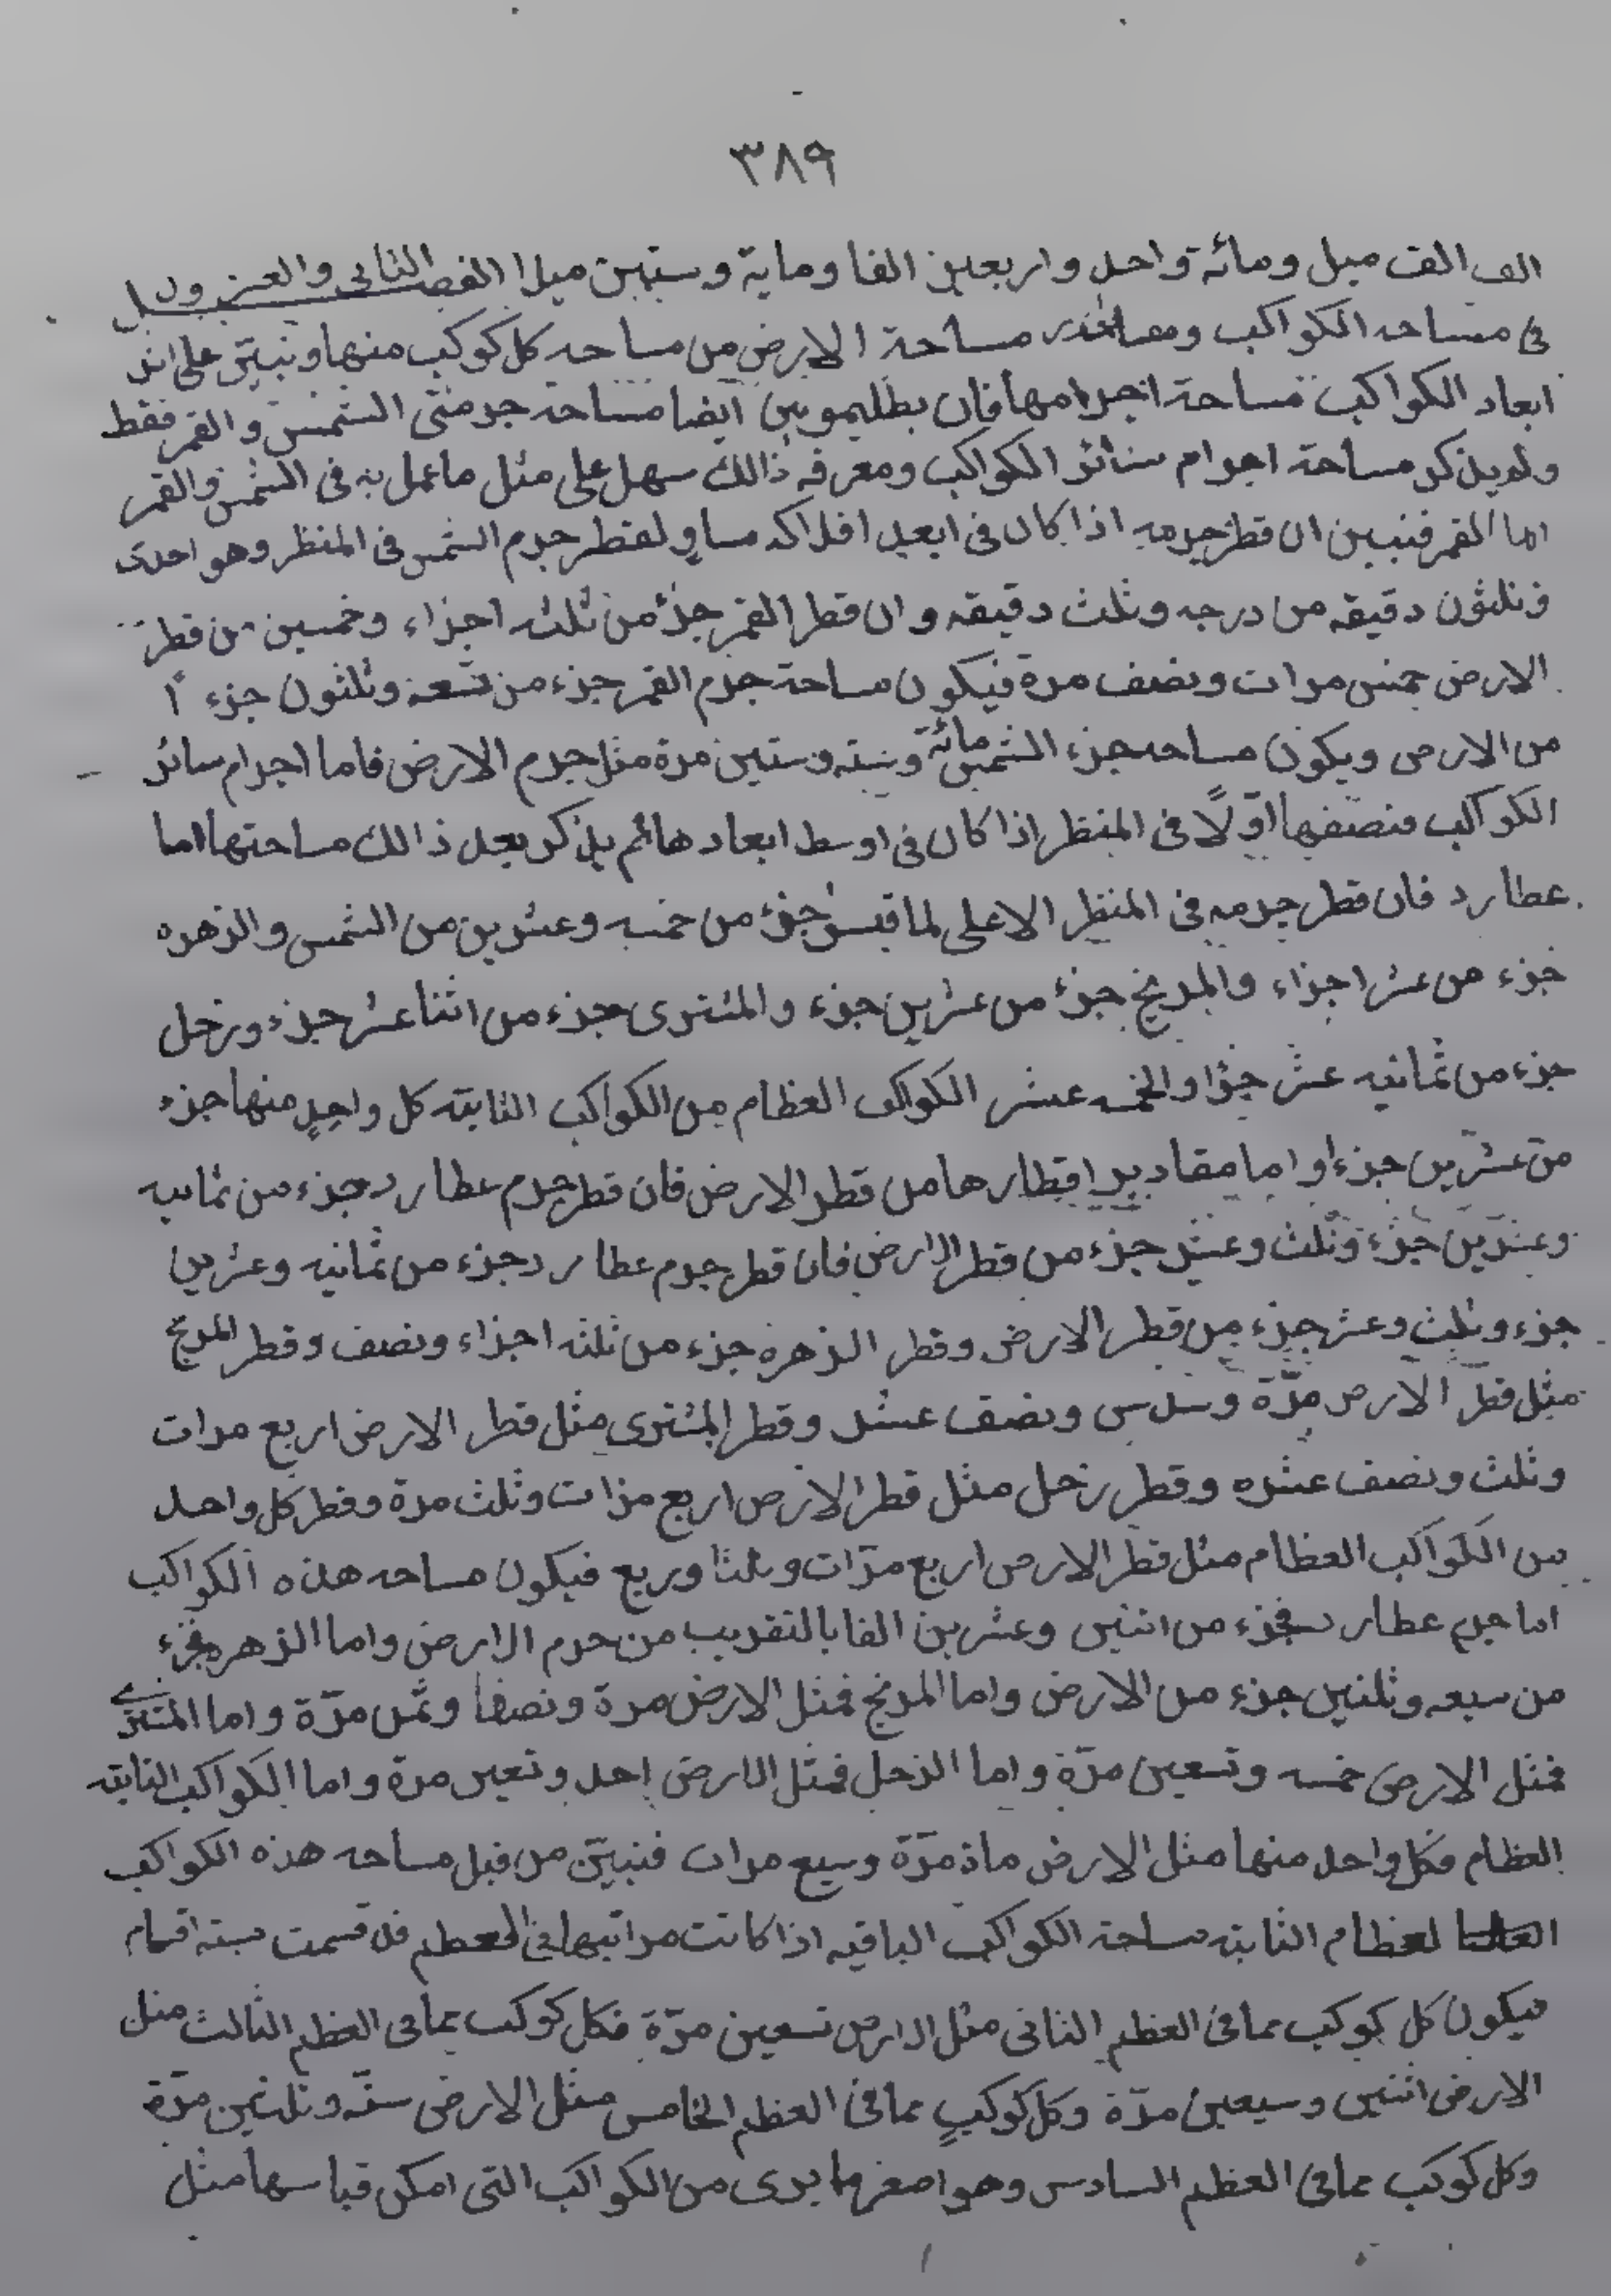 ٣٨٩
الف الف ميل ومائة واحد واربعين الفا وماية وستين ميلا الفصل الثانى والعشرون
فى مساحه الكواكب مساحة الارض من مساحه كل كوكب منها ونبتى على اثر
ابعاد الكواكب مساحة اجرامها فان بطليموس ايضا مساحه جرمتى الشمس والقمر فقط
ولم يذكر مساحة اجرام سائر الكواكب ومعرفه ذالك سهل على مثل ما عمل به فى الشمس والقمر
اما القمر فنبين ان قطر جرمه اذا كان فى ابعد افلاكه مساو لقطر جرم الشمس فى المنظر وهو احدى
وثلثون دقيقه من درجه وثلث دقيقه وان قطر القمر جزء من ثلثه اجزاء وخمسين من قطر
الارض خمس مرات ونصف مرة فيكون مساحة جرم القمر جزء من تسعه وثلثون جزء ا
من الارض ويكون مساحه جزء الشمس مائة وستة وستين مرة مثل جرم الارض فاما اجرام سائر
الكواكب فنصفها اوّلًا فى المنظر اذا كان فى اوسط ابعادها ثم يذكر بعد ذالك مساحتها اما
عطارد فان قطر جرمه فى المنظر الاعلى لما قيس جزء من خمسه وعشرين من الشمس والزهره
جزء من عشر اجزاء والمريخ جزء من عشرين جزء والمشترى جزء من اثنا عشر جزء وزحل
جزء من ثمانيه عشر جزؤا والخمسه عشر الكواكب العظام من الكواكب الثابته كل واحدٍ منها جزء
من عشرين جزء واما مقادير اقطارها من قطر الارض فان قطر جرم عطارد جزء من ثمانيه
وعشرين جزء وثلث وعشر جزء من قطر الارض فان قطر جرم عطارد جزء من ثمانيه وعشرين
جزء وثلث وعشر جزء من قطر الارض وقطر الزهره جزء من ثلثه اجزاء ونصف وقطر المريخ
مثل قطر الارض مرّة وسدس ونصف عشر وقطر المشترى مثل قطر الارض اربع مرات
وثلث ونصف عشره وقطر زحل مثل قطر الارض اربع مرات وثلث مرة وقطر كل واحد
من الكواكب العظام مثل قطر الارض اربع مرّات وثلثا وربع فيكون مساحه هذه الكواكب
اما جرم عطارد فجزء من اثنين وعشرين الفا بالتقريب من جرم الارض واما الزهره فجزء
من سبعه وثلثين جزء من الارض واما المريخ فمثل الارض مرة ونصفا وثمن مرّة واما المشترى
فمثل الارض خمسه وتسعين مرّة واما الزحل فمثل الارض احد وتعين مرة واما الكواكب الثابته
العظام فكل واحد منها مثل الارض ماة مرّة وسبع مرات فنبيّن من قبل مساحه هذه الكواكب
العظام الثابته مساحة الكواكب الباقيه اذا كانت مراتبها فى العظم قد قسمت ستة اقسام
فيكون كل كوكب مما فى العظم الثانى مثل الارض تسعين مرّة فكل كوكب مما فى العظم الثالث مثل
الارض اثنين وسبعين مرّة وكل كوكبٍ مما فى العظم الخامس مثل الارض ستّه وثلثين مرّة
وكل كوكب مما فى العظم السادس وهو اصغر ما يرى من الكواكب التى امكن قياسها مثل